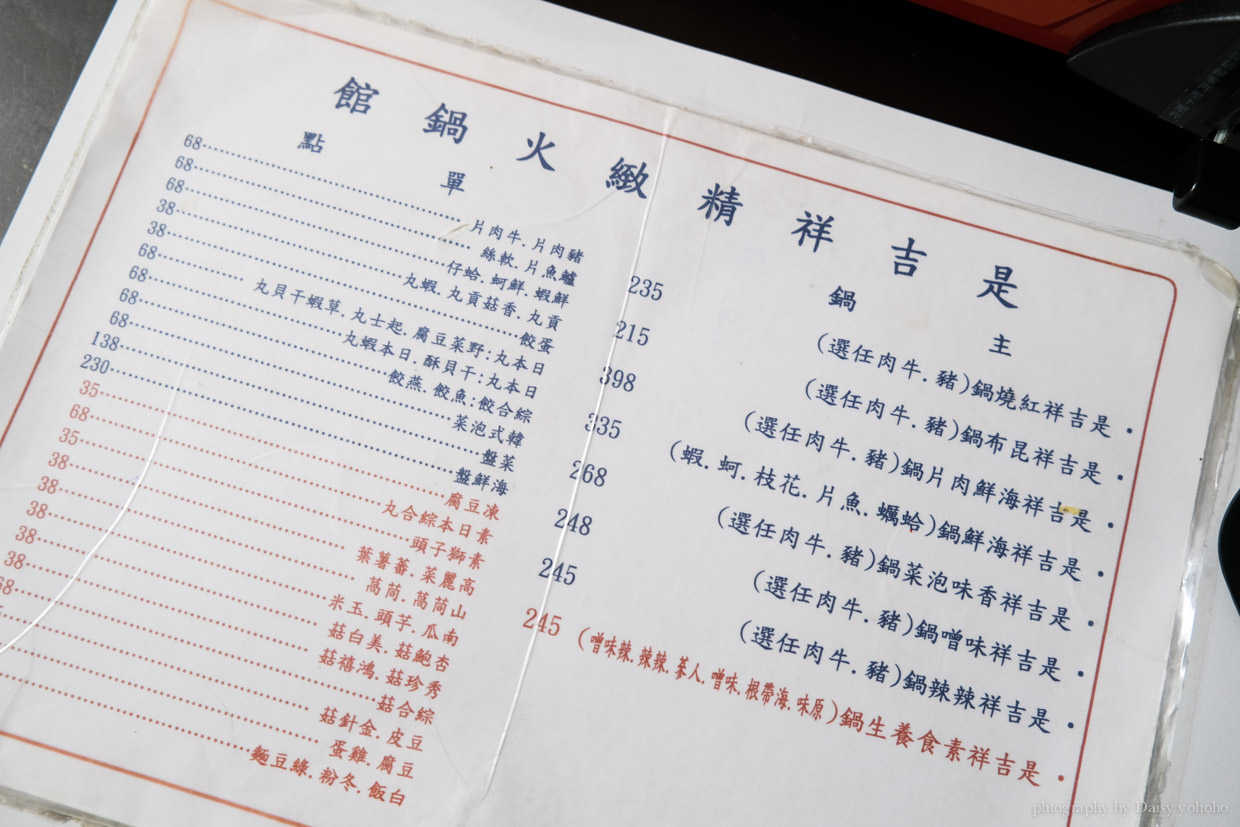 是吉祥精緻火鍋館
主鍋
・是吉祥紅燒鍋(豬.牛肉任選) 235
・是吉祥昆布鍋(豬.牛肉任選) 215
・是吉祥海鮮肉片鍋(豬.牛肉任選) 398
・是吉祥海鮮鍋(蛤蠣.魚片.花枝.蚵.蝦) 335
・是吉祥香味泡菜鍋(豬.牛肉任選) 268
・是吉祥味噌鍋(豬.牛肉任選) 248
・是吉祥辣辣鍋(豬.牛肉任選) 245
・是吉祥素食養生鍋(原味.海帶根.味噌.人蔘.辣辣.辣味噌) 245
單點
豬肉片.牛肉片 68
鱸魚片.軟絲 68
鮮蝦.鮮蚵.蛤仔 68
貢丸.香菇貢丸.蝦丸 38
蛋餃 38
日本丸:野菜豆腐.起士丸.草蝦干貝丸 68
日本丸:干貝酥.日本蝦丸 68
綜合餃:魚餃.燕餃 68
韓式泡菜 68
菜盤 138
海鮮盤 230
凍豆腐 35
素日本綜合丸 68
素獅子頭 35
高麗菜.蕃薯葉 38
山茼萵.茼萵 38
南瓜.芋頭.玉米 38
杏鮑菇.美白菇 38
秀珍菇.鴻禧菇 38
綜合菇
豆皮.金針菇
豆腐.雞蛋
白飯.冬粉.綠豆麵
photography by Daisy yohoho